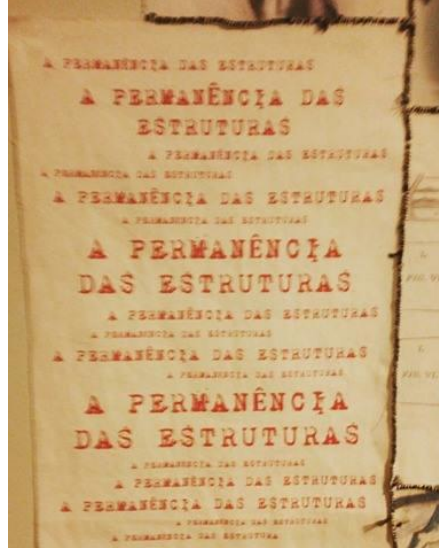 A PERMANÊNCIA DAS ESTRUTURAS
A PERMANÊNCIA DAS
ESTRUTURAS
A PERMANÊNCIA DAS ESTRUTURAS
A PERMANENCIA DAS ESTRUTURAS
A PERMANÊNCIA DAS ESTRUTURAS
A PERMANENCIA DAS ESTRUTURAS
A PERMANÊNCIA
DAS ESTRUTURAS
A PERMANÊNCIA DAS ESTRUTURAS
A PERMANENCIA DAS ESTRUTURAS
A PERMANÊNCIA DAS ESTRUTURAS
A PERMANENCIA DAS ESTRUTURAS
A PERMANÊNCIA
DAS ESTRUTURAS
A PERMANENCIA DAS ESTRUTURAS
A PERMANÊNCIA DAS ESTRUTURAS
A PERMANÊNCIA DAS ESTRUTURAS
A PERMANENCIA DAS ESTRUTURAS
A PERMANENCIA DAS ESTRUTURA